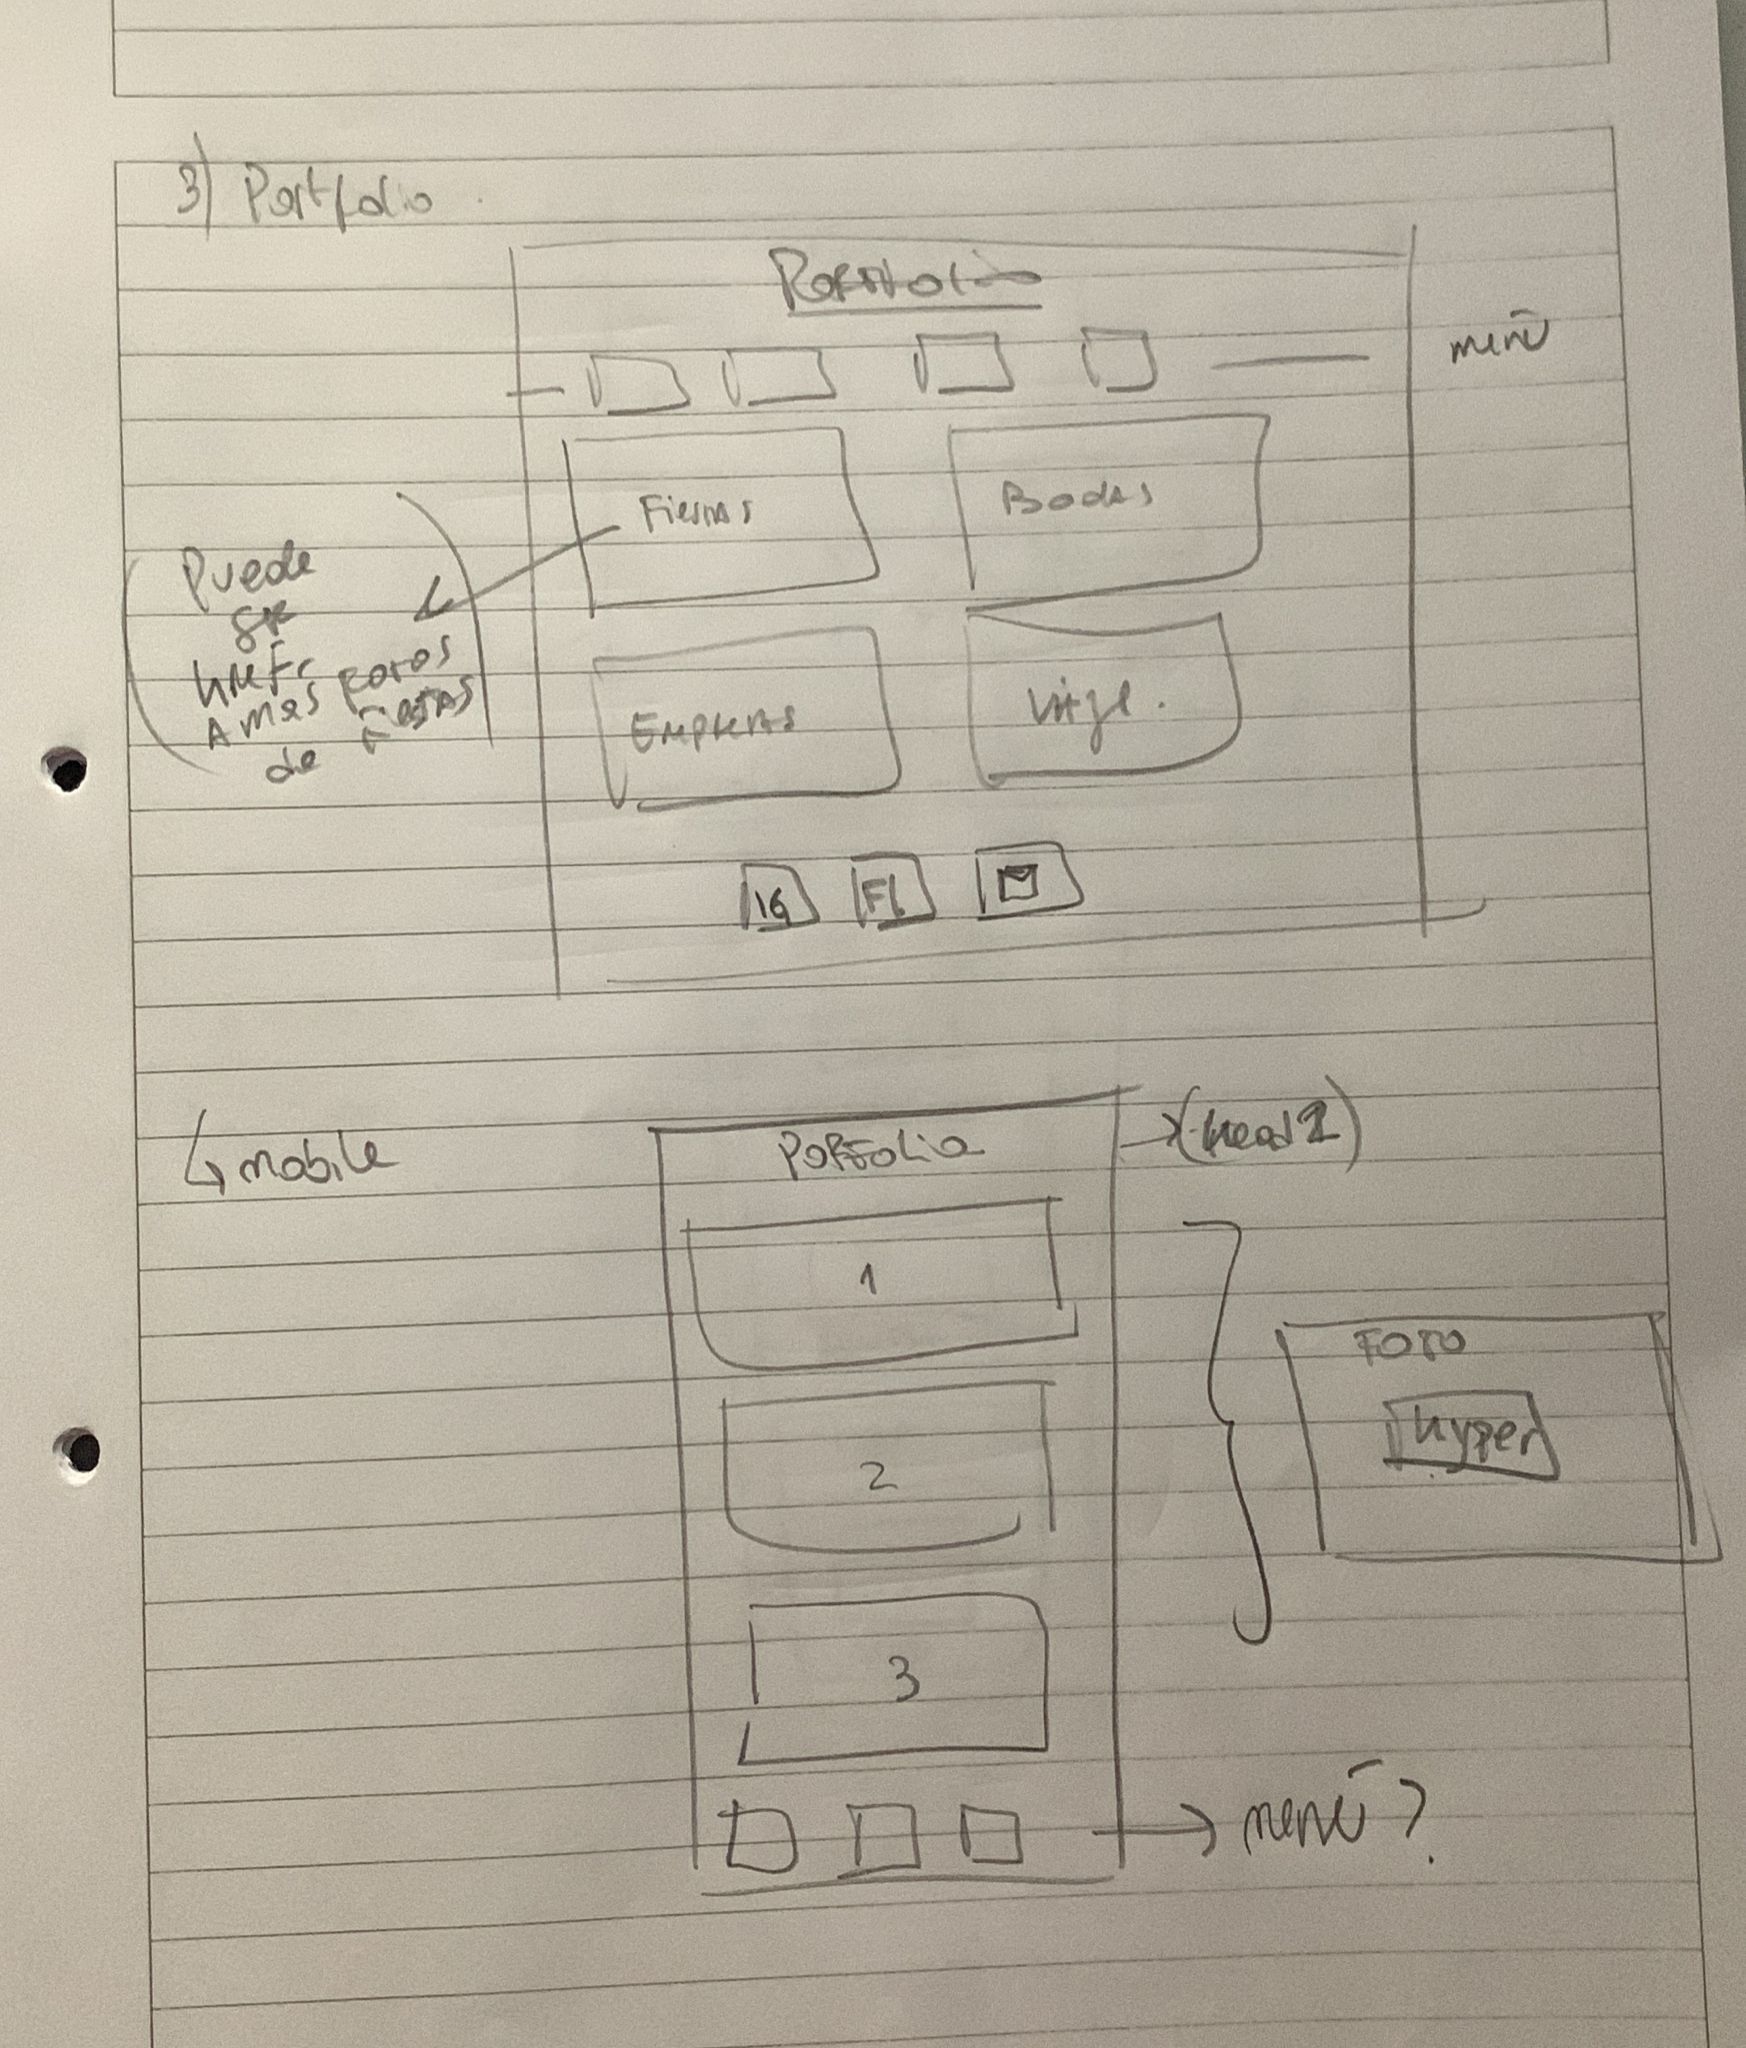 3) Portfolio
Portfolio
menú
Fiestas
Bodas
Puede
ser
href
A mas fotos
de Fiestas
Empresas
Viaje.
IG
FL
↳ mobile
Portfolio
→ (head 1)
1
FOTO
hyper
2
3
→ menú?